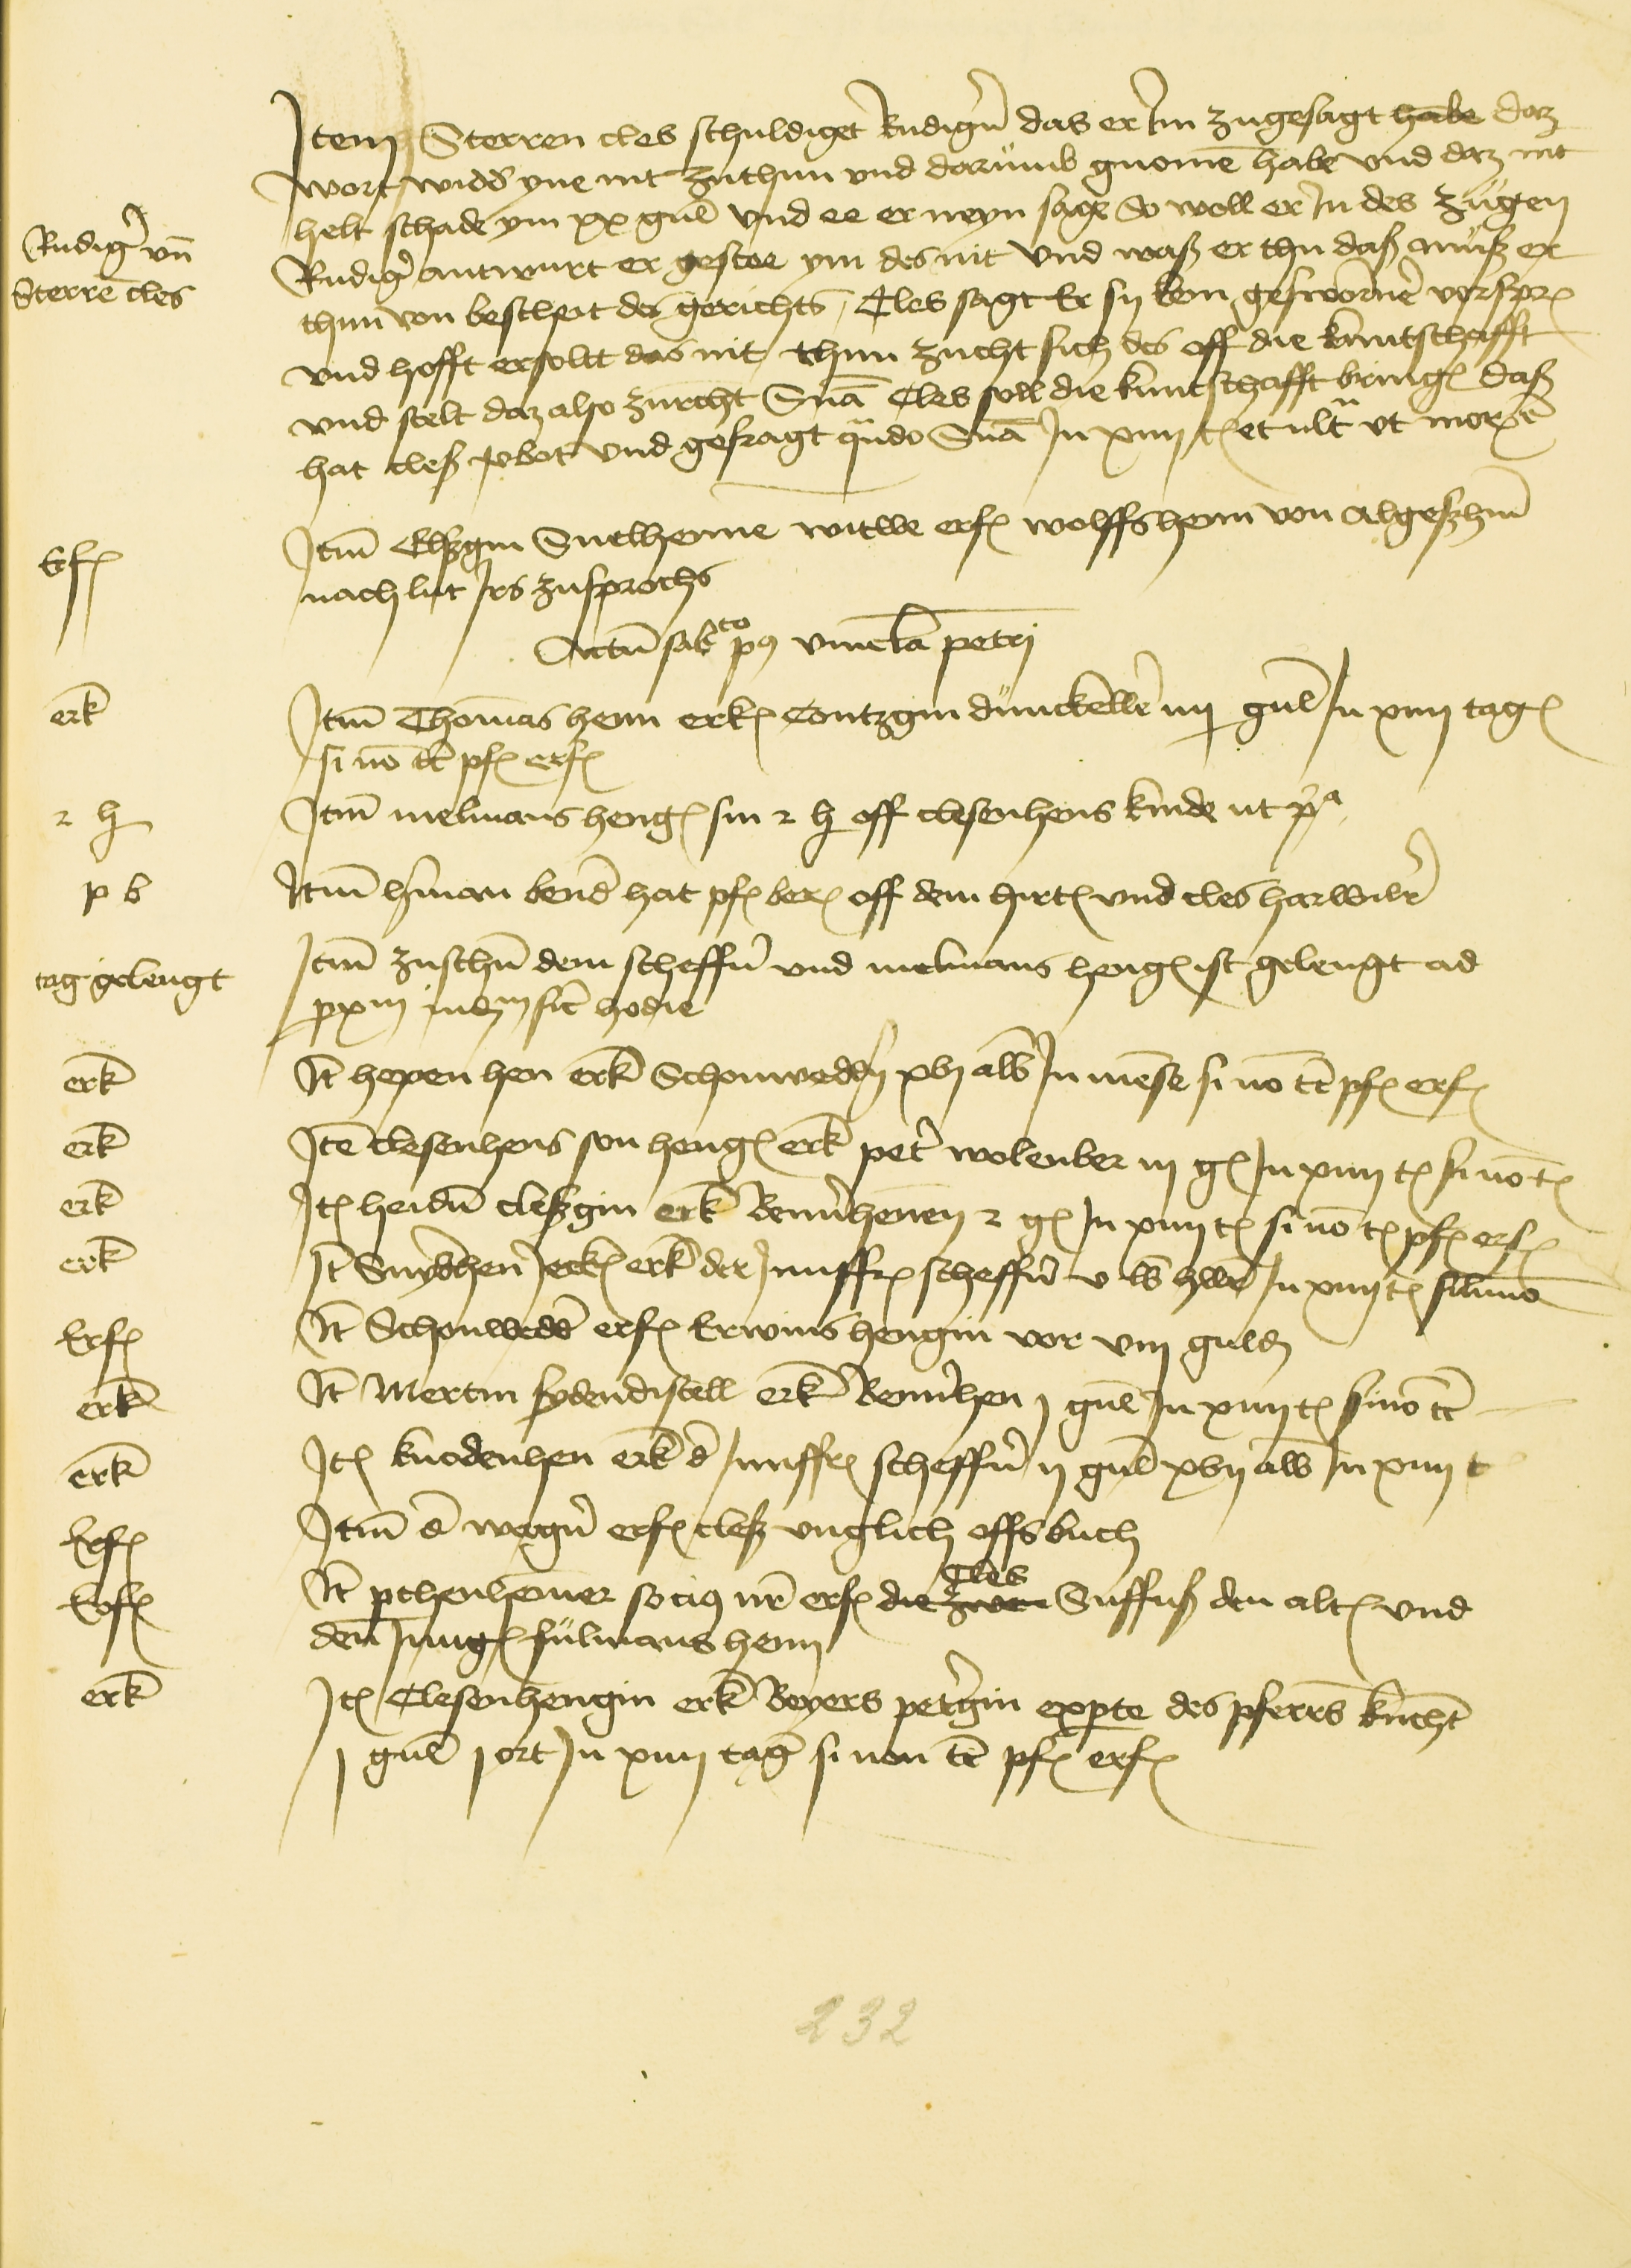 Item Sterren cles schuldiget Rudigern das er Im zugesagt habe daz
wort widder yne nit zuthun und darumb gnomen habe und daz nit
helt schade ym xx gul und ee er neyn sage So woll er In des zugen
Rudiger und
Sterren cles
Rudiger antwurt er gestee ym des nit und waß er thu daß muß er
thun von bescheit des gerichts, Cles sagt Er sy kein gesworner vorspr
und hofft er sollt das nit thun zucht sich des off die kuntschafft
und stelt daz also zurecht Sna Cles soll die kuntschafft bringen daß
hat cleß vbot und gefragt qndo Sna In xiiij t et ult ut moris e
Erf
Itm Elßgin Snelhenne witwe erf wolffshenn von Algeßhm
nach lut Irs zusprochs
Actum sabto p9 vincla petri
erk
Itm Thomas henn erk Contzgin dunckeller iiij gul In xiiij tagen
si no tc pf erf
2 h
Itm melmans heng sin 2 h off clesenhens kinde ut pa
p b
Itm hman bend hat pf ber off dem hirt und cles harwilr
tag gelengt
Itm zuschn dem scheffn und melmans heng ist gelengt ad
pxm judm sic hodie
erk
It hepen hen erk Schonweddern xvj alb In mense si no tc pf erf
erk
Ite clesenhens son heng erk peter wolenber iij g In xiiij t si no t
erk
It heidn cleßgin erk Bennhennen 2 g In xiiij t si no t pf erf
erk
It Snyderhen Jeck erk der Junffr scheffn v lb hllr In xiiij t si no
Erf
It Schonwedder erf Erwins hengin vor viij guld
erk
It Mertin sydendistell erk Bennhen j gul In xiiij t si no tc
erk
It knodenhen erk d Junffr scheffn ij gul xvij alb In xiiij t
Erf
Itm d wegn erf cleß unglich offs buch
Erf
It pthenhemer soci9 nr erf die zwen Cles Suffuß den alt und
den Jung fulmans henn
erk
It Clesenhengin erk Beyers petergin exparte des pferrers knecht
j gul j ort In xiiij tag si non tc pf erf
232